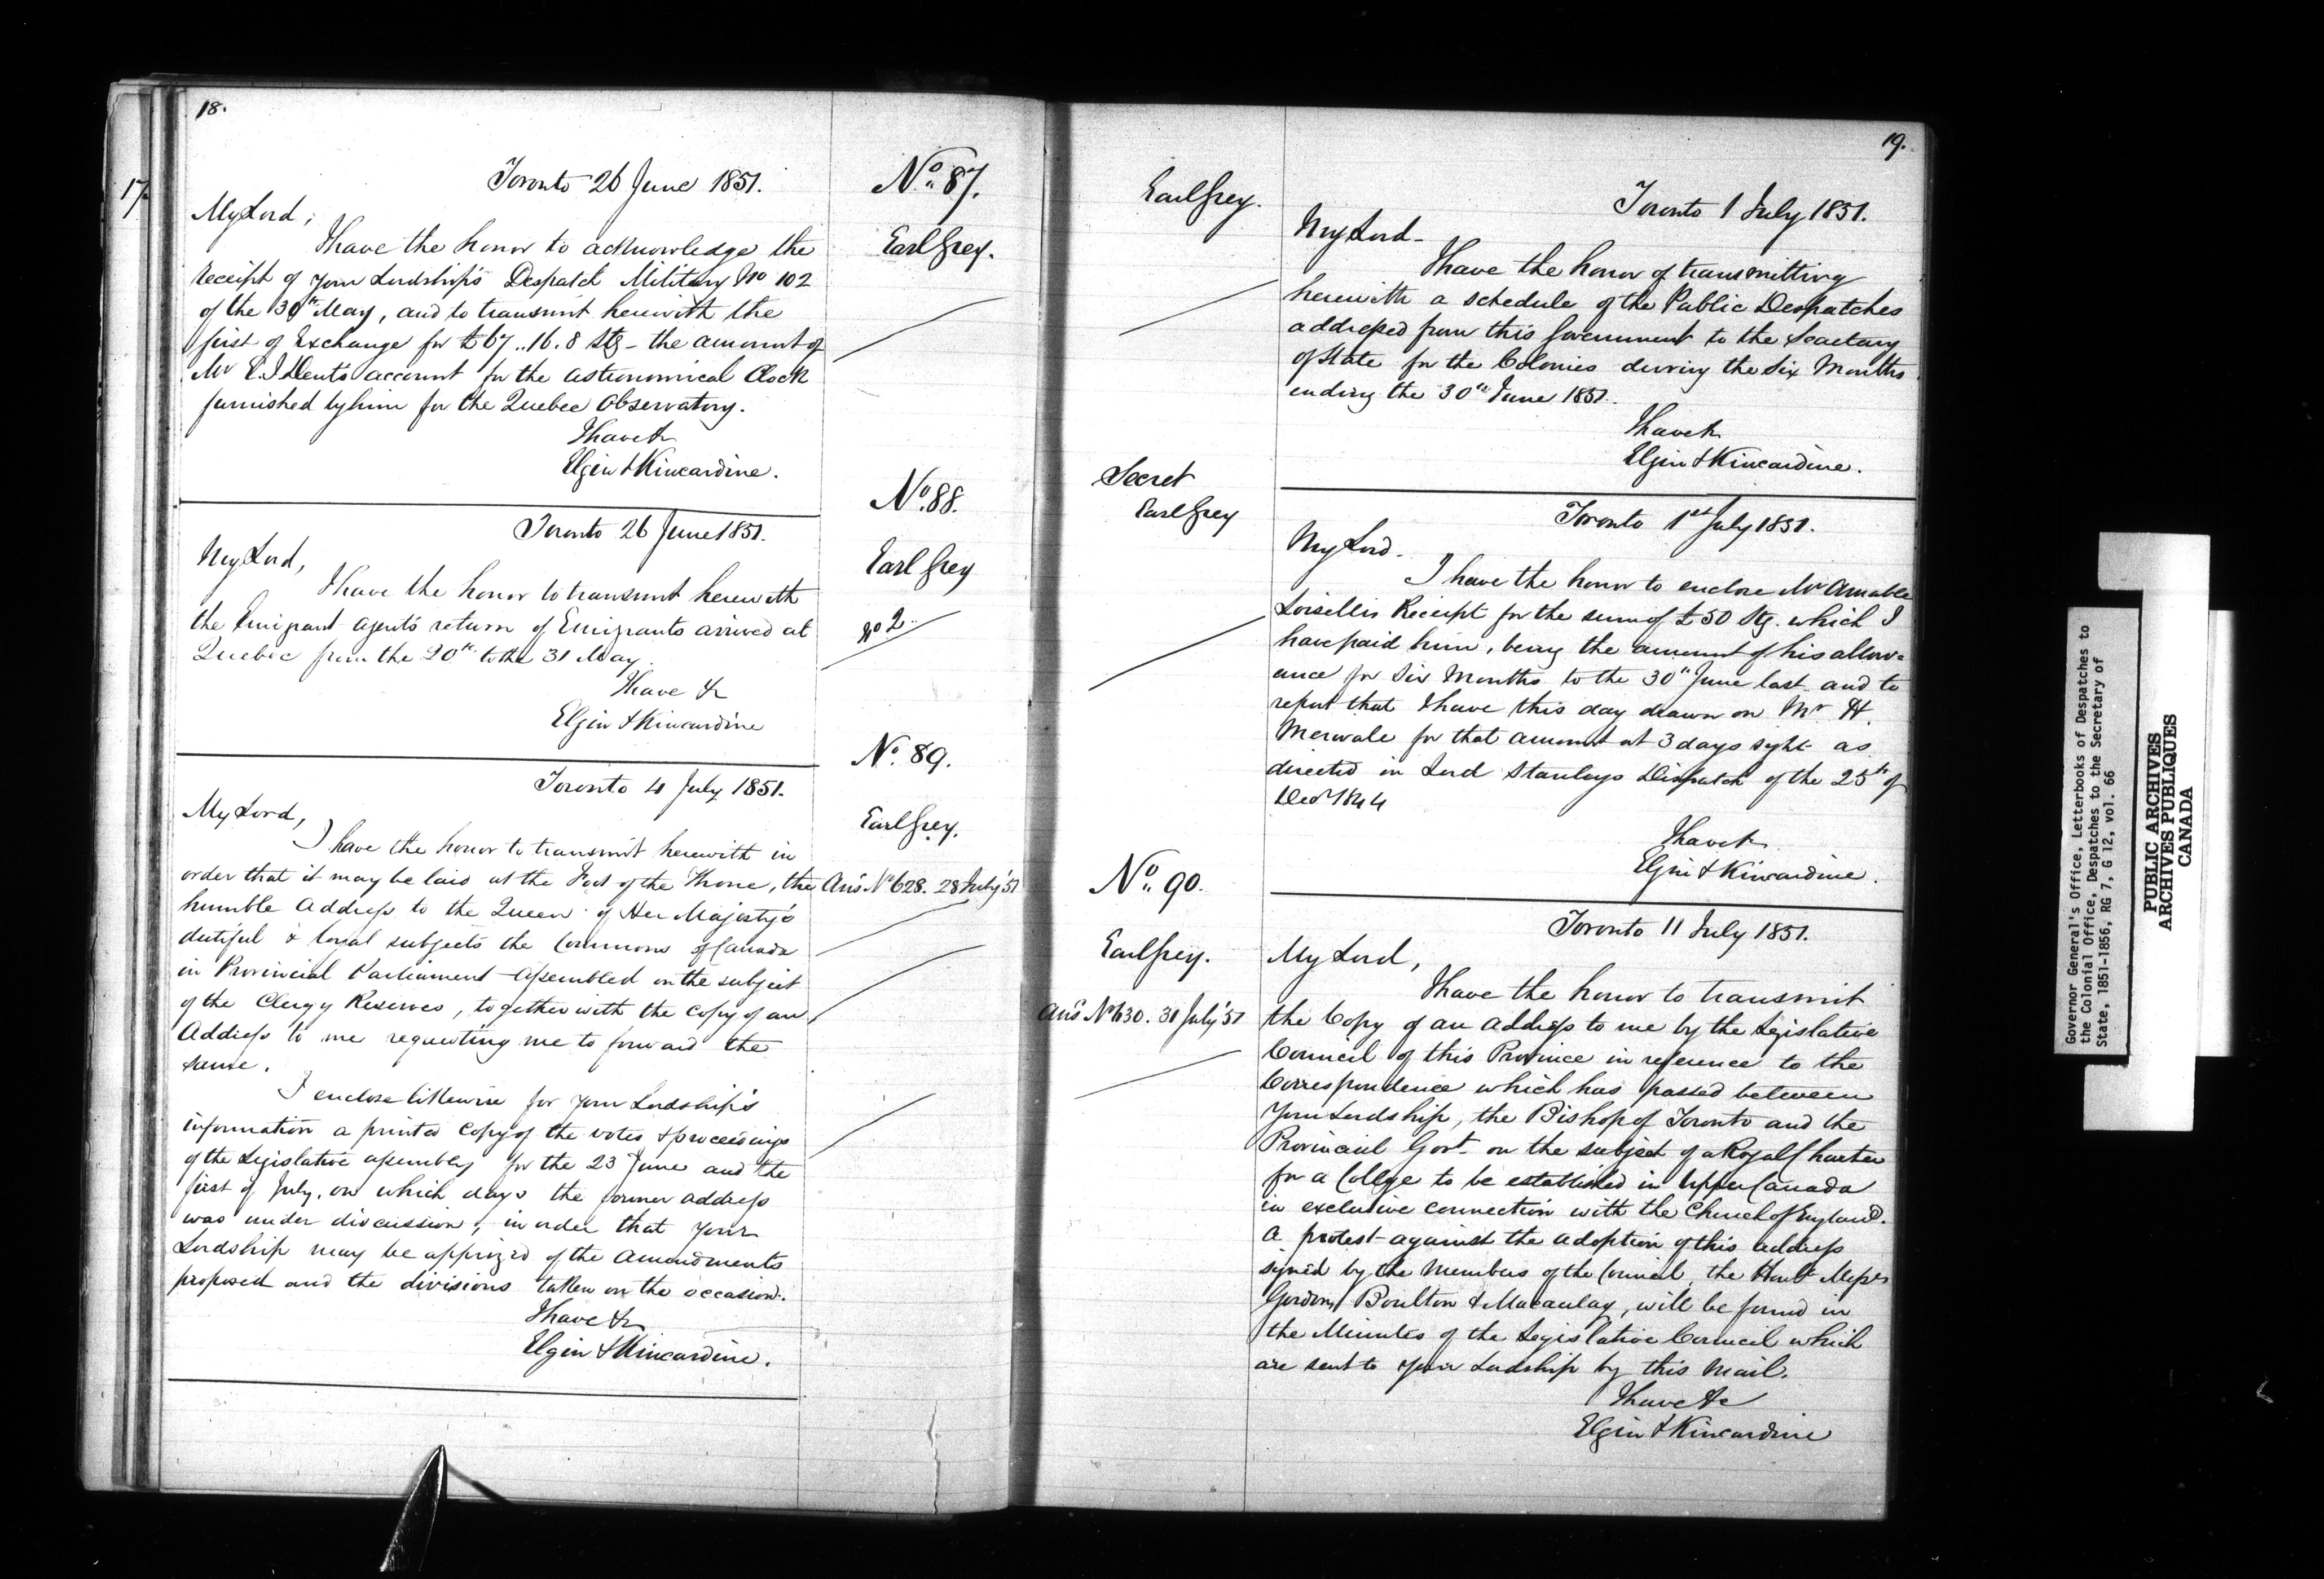 18.
17.
Toronto 26 June 1851.
No. 87.
Earl Grey.
My Lord,
I have the honor to acknowledge the
receipt of your Lordship's Despatch Military No 102
of the 30th May, and to transmit herewith the
first of Exchange for £67..16.8 Stg - the amount of
Mr E. J Dent's account for the astronomical Clock
furnished by him for the Quebec Observatory.
I have &c
Elgin & Kincardine.
No. 88.
Earl Grey
No 2.
Toronto 26 June 1851.
My Lord,
I have the honor to transmit herewith
the Emigrant agent's return of Emigrants arrived at
Quebec from the 20th to the 31 May.
I have &c
Elgin & Kincardine
No. 89.
Earl Grey.
Ans No 628. 28 July '51
Toronto 4 July 1851.
My Lord,
I have the honor to transmit herewith in
order that it may be laid at the Foot of the Throne, the
humble Address to the Queen of Her Majesty's
dutiful & loyal subjects the Commons of Canada
in Provincial Parliament assembled on the subject
of the Clergy Reserves, together with the copy of an
Address to me requesting me to forward the
same.
I enclose likewise for your Lordship's
information a printed Copy of the votes & proceedings
of the Legislative assembly for the 23 June and the
first of July, on which days the former address
was under discussion, in order that your
Lordship may be apprized of the amendments
proposed and the divisions taken on the occasion.
I have &c
Elgin & Kincardine.
19.
Earl Grey.
Toronto 1 July 1851.
My Lord -
I have the honor of transmitting
herewith a schedule of the Public Despatches
addressed from this Government to the Secretary
of State for the Colonies during the Six Months
ending the 30th June 1851.
I have &c
Elgin & Kincardine.
Secret
Earl Grey
Toronto 1st July 1851.
My Lord.
I have the honor to enclose Mr Amable
Loiselle's Receipt for the sum of £50 Stg. which I
have paid him, being the amount of his allow=
ance for Six Months to the 30th June last and to
report that I have this day drawn on Mr H.
Merivale for that amount at 3 days sight as
directed in Lord Stanleys Dispatch of the 25th of
Decr 1844
I have &c
Elgin & Kincardine.
No. 90.
Earl Grey.
Ans No 630. 31 July '51
Toronto 11 July 1851.
My Lord,
I have the honor to transmit
the Copy of an address to me by the Legislative
Council of this Province in reference to the
Correspondence which has passed between
Your Lordship, the Bishop of Toronto and the
Provincial Govt. on the subject of a Royal Charter
for a College to be established in Upper Canada
in exclusive connection with the Church of England.
A protest against the adoption of this address
signed by the Members of the Council, the Honble Messrs
Gordon, Boulton & Macaulay, will be found in
the Minutes of the Legislative Council which
are sent to your Lordship by this Mail.
I have &c
Elgin & Kincardine
Governor General's Office, Letterbooks of Despatches to
the Colonial Office, Despatches to the Secretary of
State, 1851-1856, RG 7, G 12, vol. 66
PUBLIC ARCHIVES
ARCHIVES PUBLIQUES
CANADA